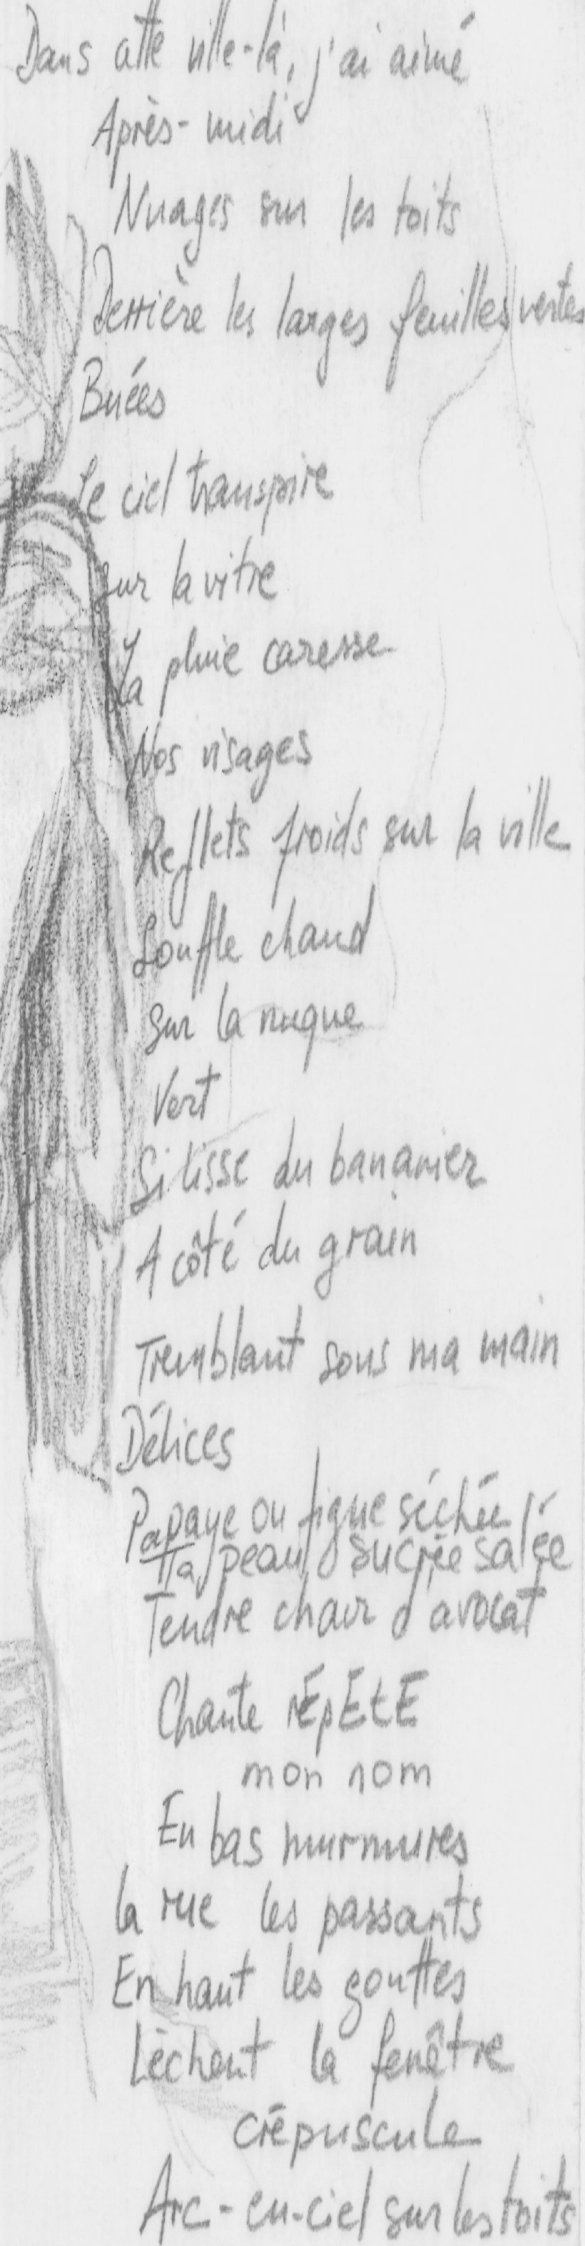 Dans cette ville-là, j'ai aimé
Après-midi
Nuages sur les toits
Derrière les larges feuilles vertes
Buées
Le ciel transpire
sur la vitre
La pluie caresse
Nos visages
Reflets froids sur la ville
Souffle chaud
sur la nuque
Vert
Si lisse du bananier
A côté du grain
Tremblant sous ma main
Délices
Papaye ou figue séchée
Ta peau sucrée salée
Tendre chair d'avocat
Chante rEpEtE
mon nom
En bas murmures
la rue les passants
En haut les gouttes
Lèchent la fenêtre
crépuscule
Arc-en-ciel sur les toits